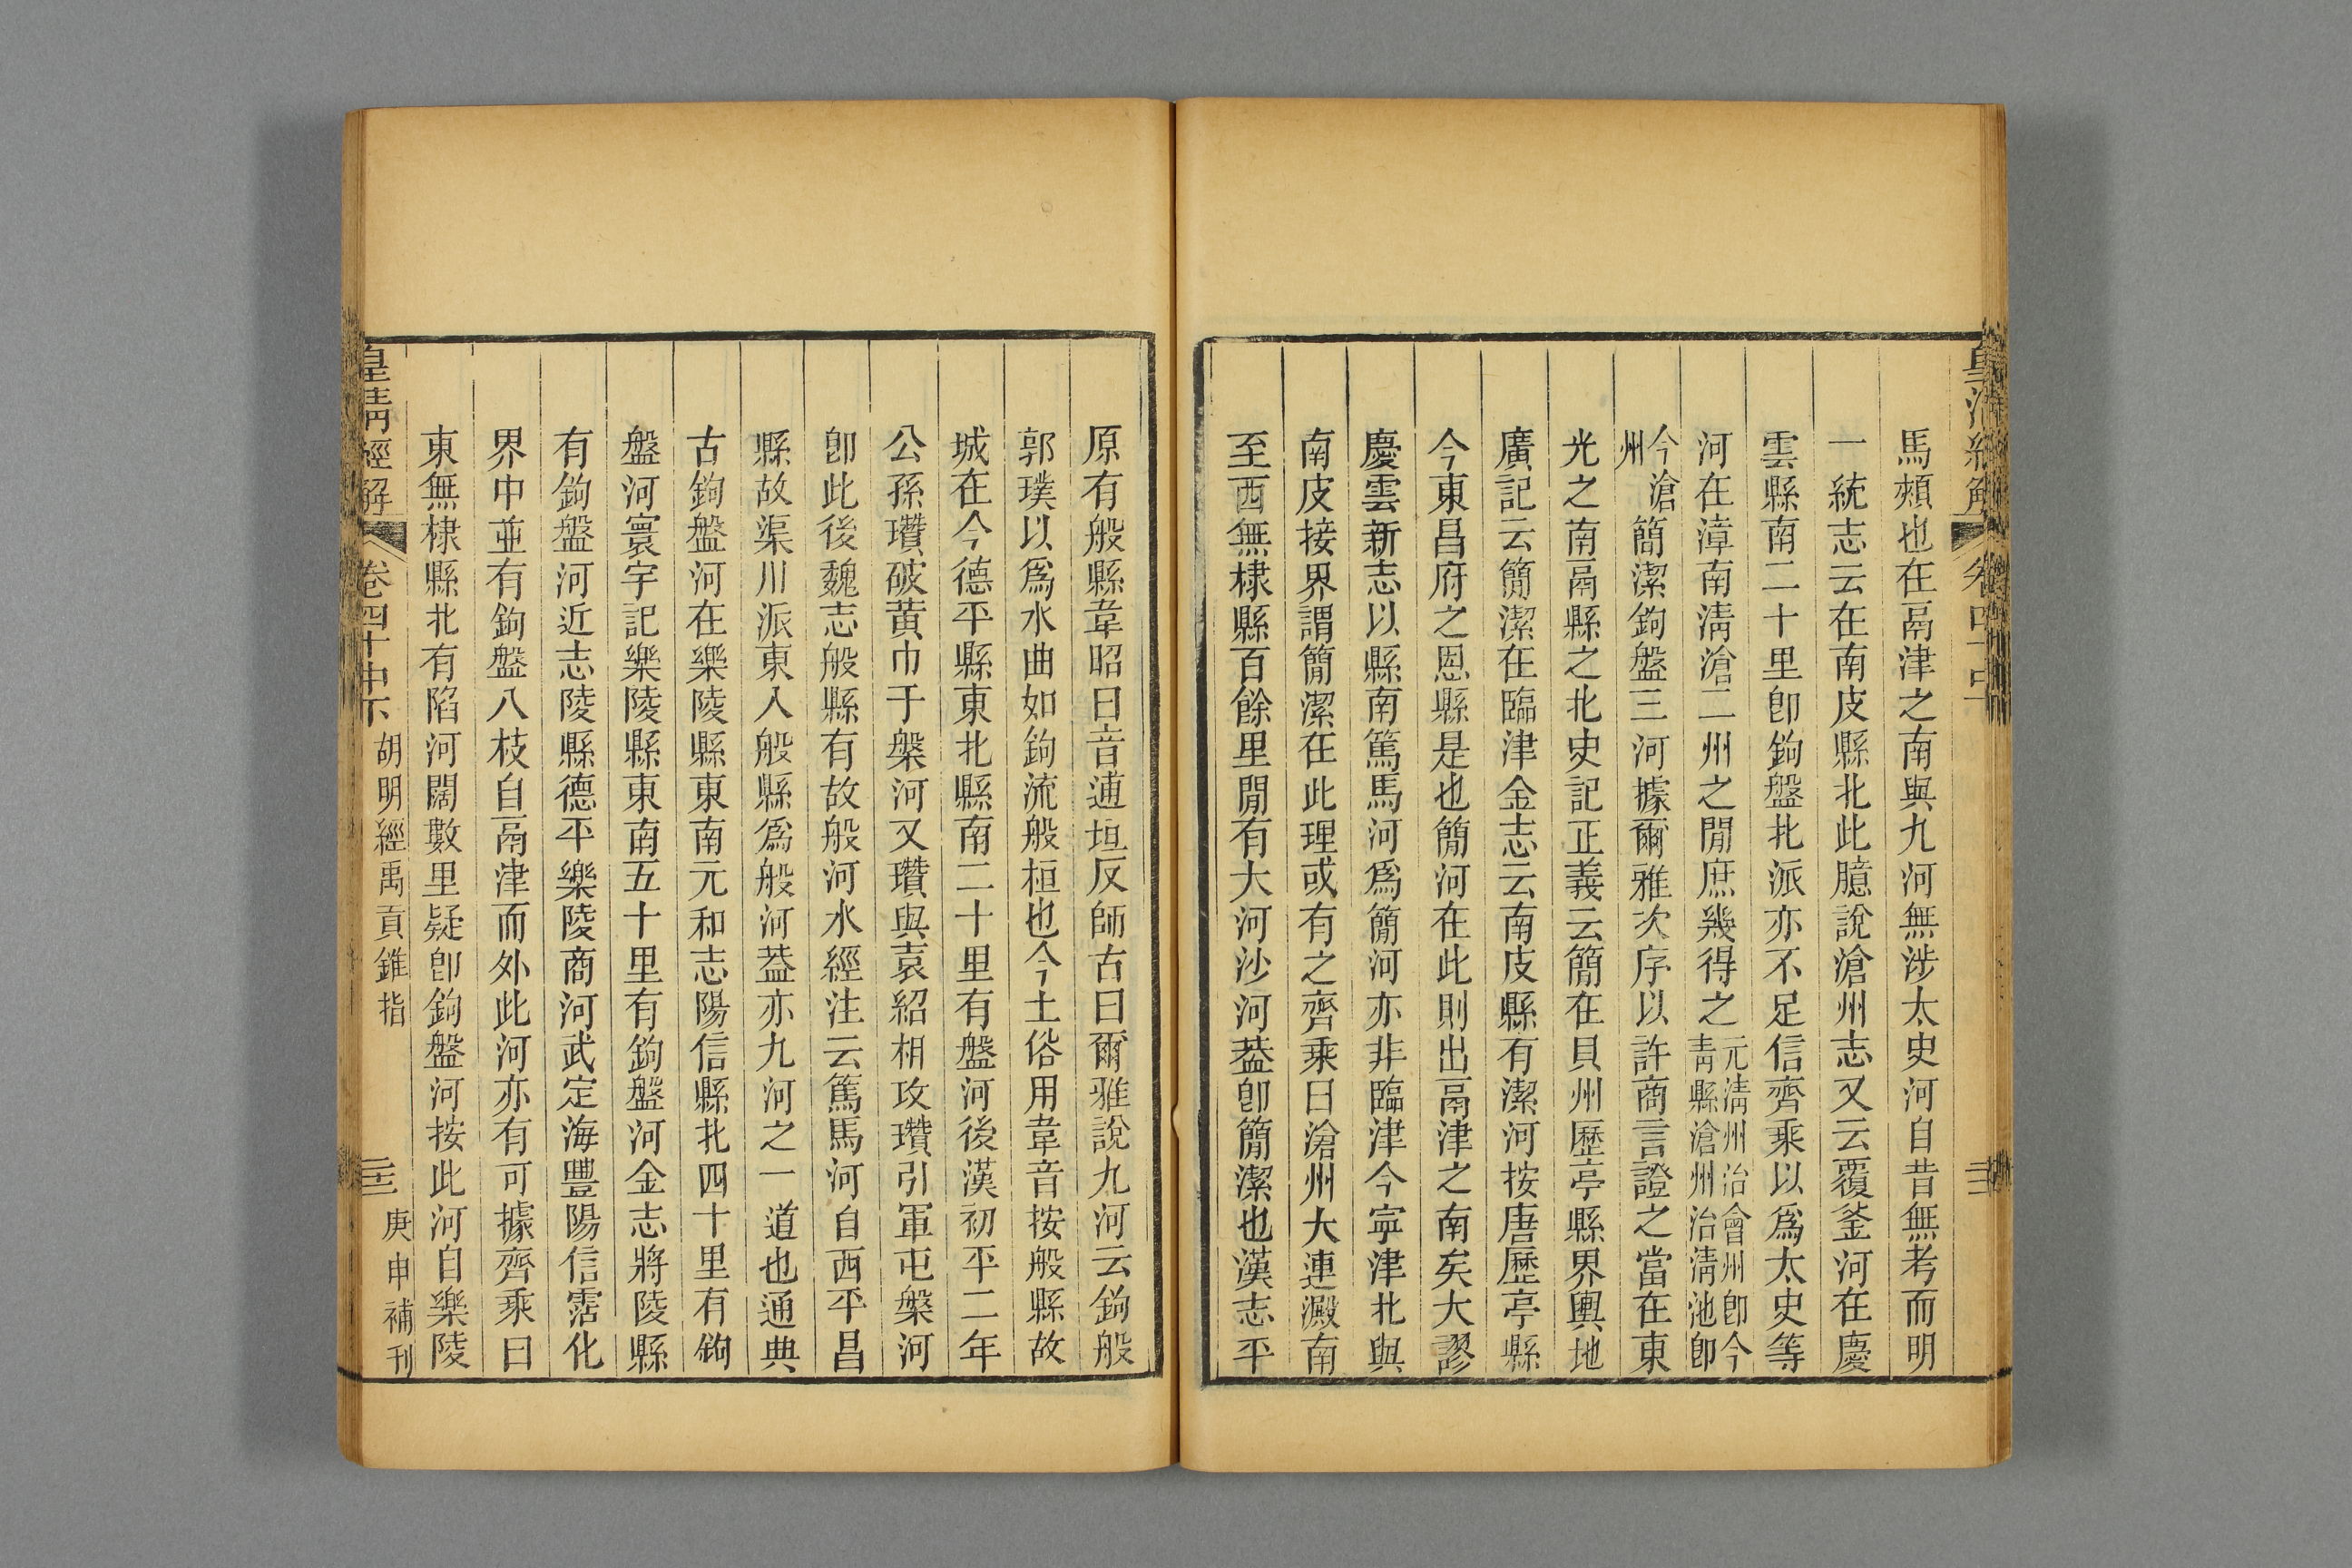 馬頰也在鬲津之南與九河無涉太史河自昔無考而明
一統志云在南皮縣北此臆說滄州志又云覆釜河在慶
雲縣南二十里卽鉤盤北派亦不足信齊乘以爲太史等
河在漳南淸滄二州之閒庶幾得之元淸州治會州卽今靑縣滄州治淸池卽
今滄州簡潔鉤盤三河據爾雅次序以許商言證之當在東
光之南鬲縣之北史記正義云簡在貝州歷亭縣界輿地
廣記云簡潔在臨津金志云南皮縣有潔河按唐歷亭縣
今東昌府之恩縣是也簡河在此則出鬲津之南矣大謬
慶雲新志以縣南篤馬河爲簡河亦非臨津今寧津北與
南皮接界謂簡潔在此理或有之齊乘曰滄州大連澱南
至西無棣縣百餘里閒有大河沙河葢卽簡潔也漢志平
原有般縣韋昭曰音逋垣反師古曰爾雅說九河云鉤般
郭璞以爲水曲如鉤流般桓也今土俗用韋音按般縣故
城在今德平縣東北縣南二十里有盤河後漢初平二年
公孫瓚破黄巾于槃河又瓚與袁紹相攻瓚引軍屯槃河
卽此後魏志般縣有故般河水經注云篤馬河自西平昌
縣故渠川派東入般縣爲般河葢亦九河之一道也通典
古鉤盤河在樂陵縣東南元和志陽信縣北四十里有鉤
盤河寰宇記樂陵縣東南五十里有鉤盤河金志將陵縣
有鉤盤河近志陵縣德平樂陵商河武定海豐陽信霑化
界中並有鉤盤八枝自鬲津而外此河亦有可據齊乘曰
東無棣縣北有陷河闊數里疑卽鉤盤河按此河自樂陵
皇淸經解 卷四十中下 胡明經禹貢錐指 庚申補刊